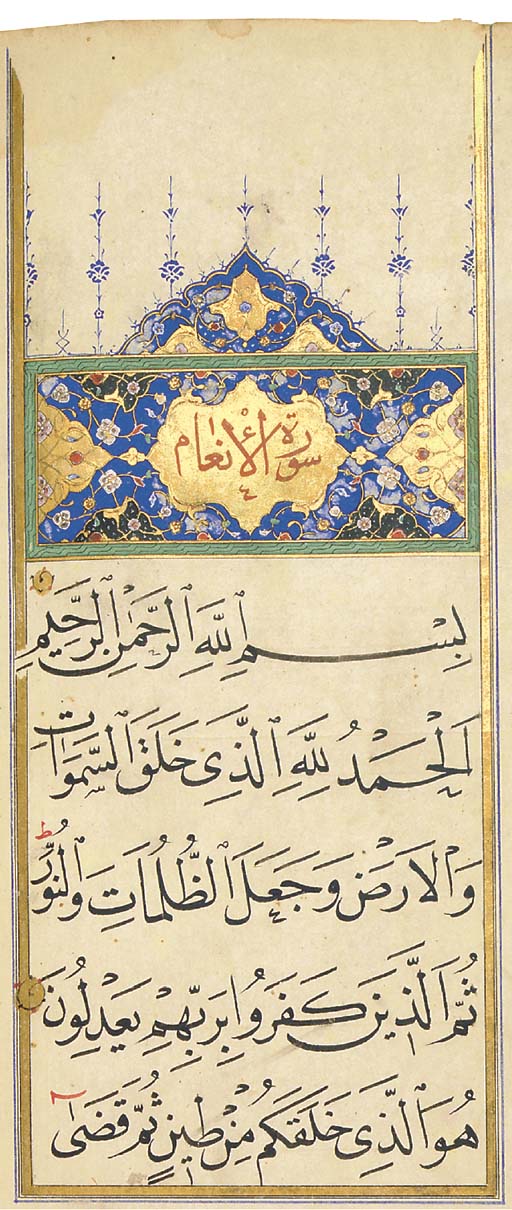 سورة الأنعام
بِسْمِ ٱللَّهِ ٱلرَّحْمٰنِ ٱلرَّحِيمِ
اَلْحَمْدُ لِلَّهِ ٱلَّذِى خَلَقَ ٱلسَّمَوَاتِ
وَٱلْاَرْضَ وَجَعَلَ ٱلظُّلُمَاتِ وَٱلنُّورَ ط
ثُمَّ ٱلَّذِينَ كَفَرُوا بِرَبِّهِمْ يَعْدِلُونَ
هُوَ ٱلَّذِى خَلَقَكُمْ مِنْ طِينٍ ثُمَّ قَضَىٰ